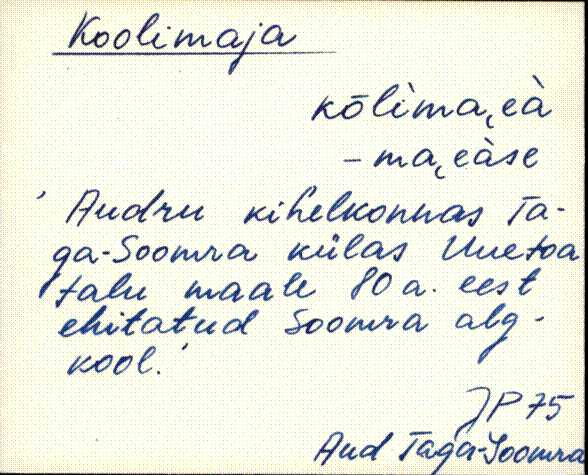 Koolimaja
kōlìma͔eà
- ma͔eàse
' Audru kihelkonnas Ta-
ga-Soomra külas Uuetoa
talu maale 80 a. eest
ehitatud Soomra alg-
kool.'
JP 75
Aud Taga-Soomra